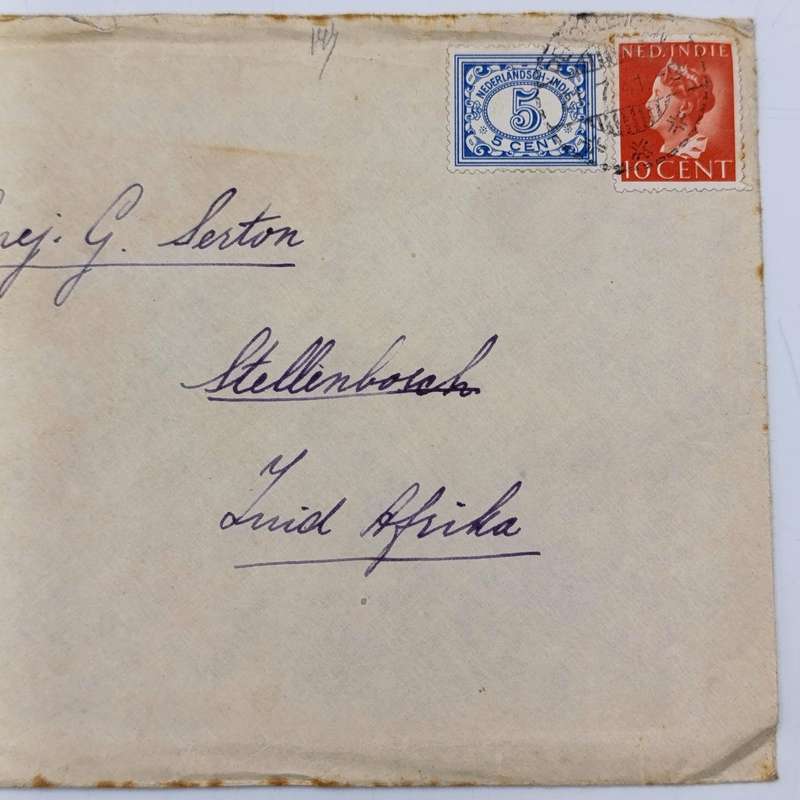 NEDERLANDSCH-INDIE
5
5 CENT
NED. INDIE
10 CENT
G. Serton
Stellenbosch
Zuid Afrika